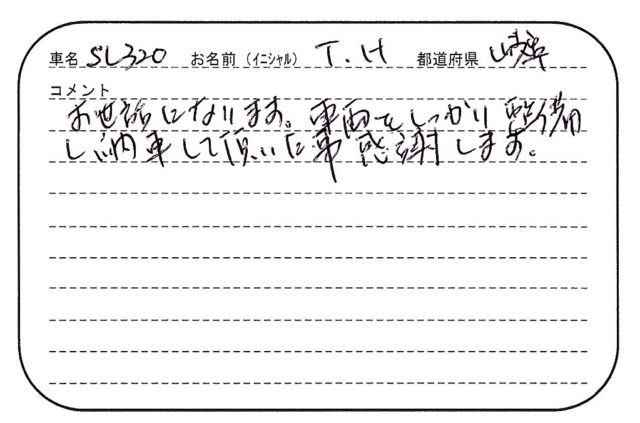 車名 SL320 お名前（ｲﾆｼｬﾙ） T.H 都道府県 岐阜
コメント
お世話になります。車両をしっかり整備
し納車して頂いた事感謝します。